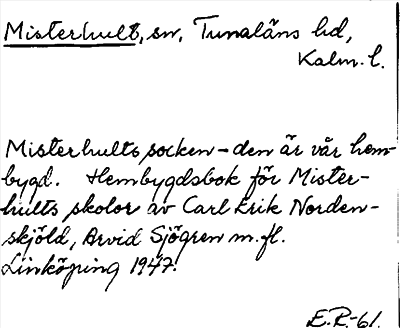 Misterhult, sn, Tunaläns hd,
Kalm. l.
Misterhults socken - den är vår hem-
bygd. Hembygdsbok för Mister-
hults skolor av Carl Erik Norden-
skjöld, Arvid Sjögren m.fl.
Linköping 1947.
E.R.-61.